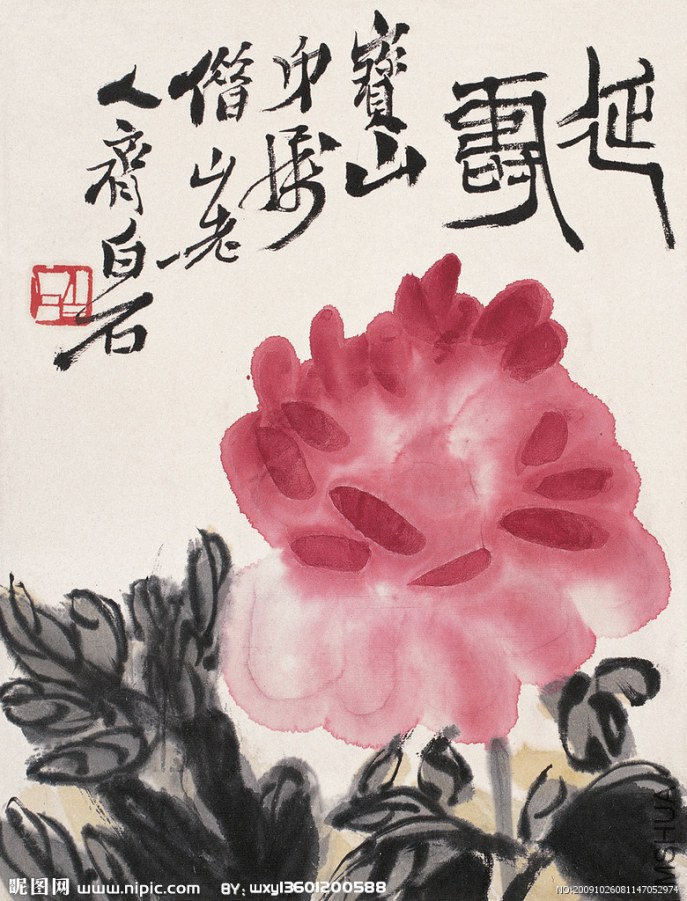 延壽
寶山
屬
借山老
人齊白石
MSHUA
昵图网 www.nipic.com BY: wxy13601200588
NO:20091026081147052974